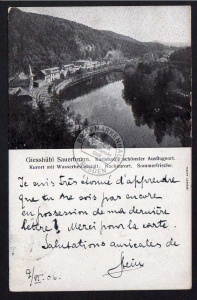 Giesshübl Sauerbrunn. Karlsbads schönster Ausflugsort.
Kurort mit Wasserheilanstalt. Nachkurort. Sommerfrische.
Je suis très étonné d'apprendre
que tu ne sois pas encore
en possession de ma dernière
lettre! Merci pour la carte.
Salutations amicales de
9/VI. 06.